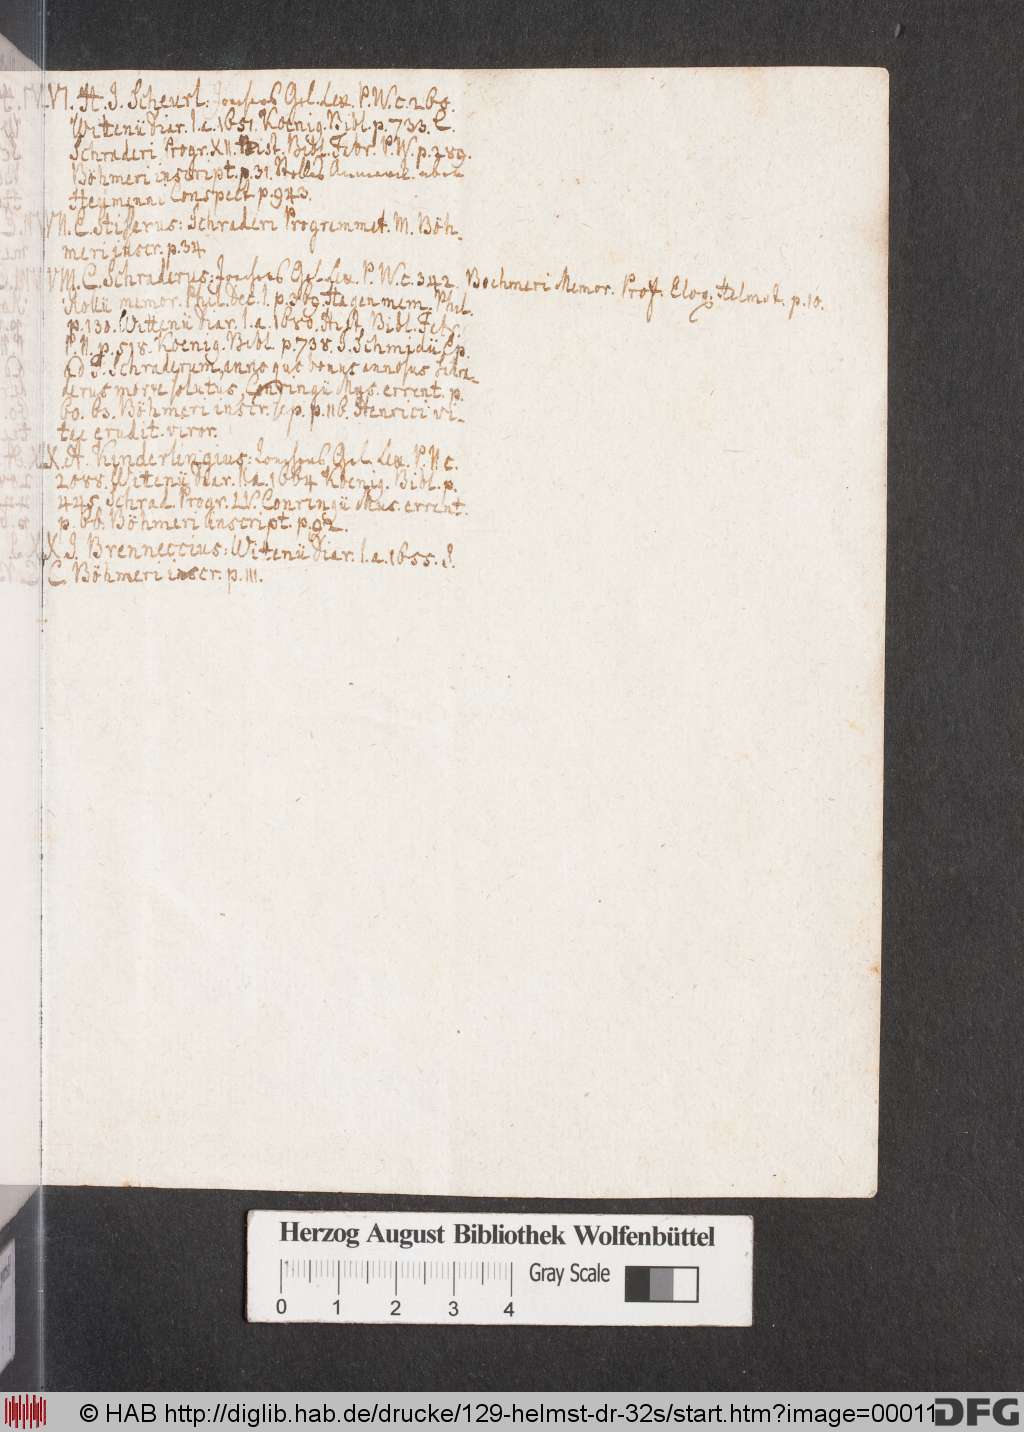 VI. H. J. Scheurl: Joechers Gel. Lex. P. IV. c. 260.
Witenii Diar. l. a. 1651. Koenig. Bibl. p. 733. C.
Schraderi Progr. XII. Hist. Bibl. Fabr. P. IV. p. 289.
Böhmeri inscript. p. 31. Stolles
Heumanni Conspect p. 943.
VII. C. Stisserus: Schraderi Programmat. M. Böh-
meri inscr. p. 34
VIII. C. Schraderus: Joechers Gel. Lex. P. IV. c. 342. Boehmeri Memor. Prof. Eloq. Helmst. p. 10.
memor. Phil. Dec. I. p. 369. Hagen mem. Phil.
p. 130. Wittenii Diar. l. a. 1680. Hist. Bibl. Fabr.
P. II. p. 518. Koenig. Bibl. p. 738. J. Schmidii Ep.
ad J. Schraderum, annis quo bonus annosus Schra-
derus morte solutus, Conringii Mus. errant. p.
60. 63. Böhmeri inscr. sep. p. 116. Henrici vi-
tae erudit. viror.
IX. A. Kinderlingius: Joechers Gel. Lex. P. II c.
2088. Witenii Diar. l. a. 1664 Koenig. Bibl. p.
445. Schrad. Progr. LV. Conringii Mus. errant.
p. 66. Böhmeri inscript. p. 92.
X. J. Brenneccius: Witenii Diar. l. a. 1655. d.
C. Böhmeri inscr. p. 111.
Herzog August Bibliothek Wolfenbüttel
Gray Scale
0 1 2 3 4
© HAB http://diglib.hab.de/drucke/129-helmst-dr-32s/start.htm?image=00011
DFG